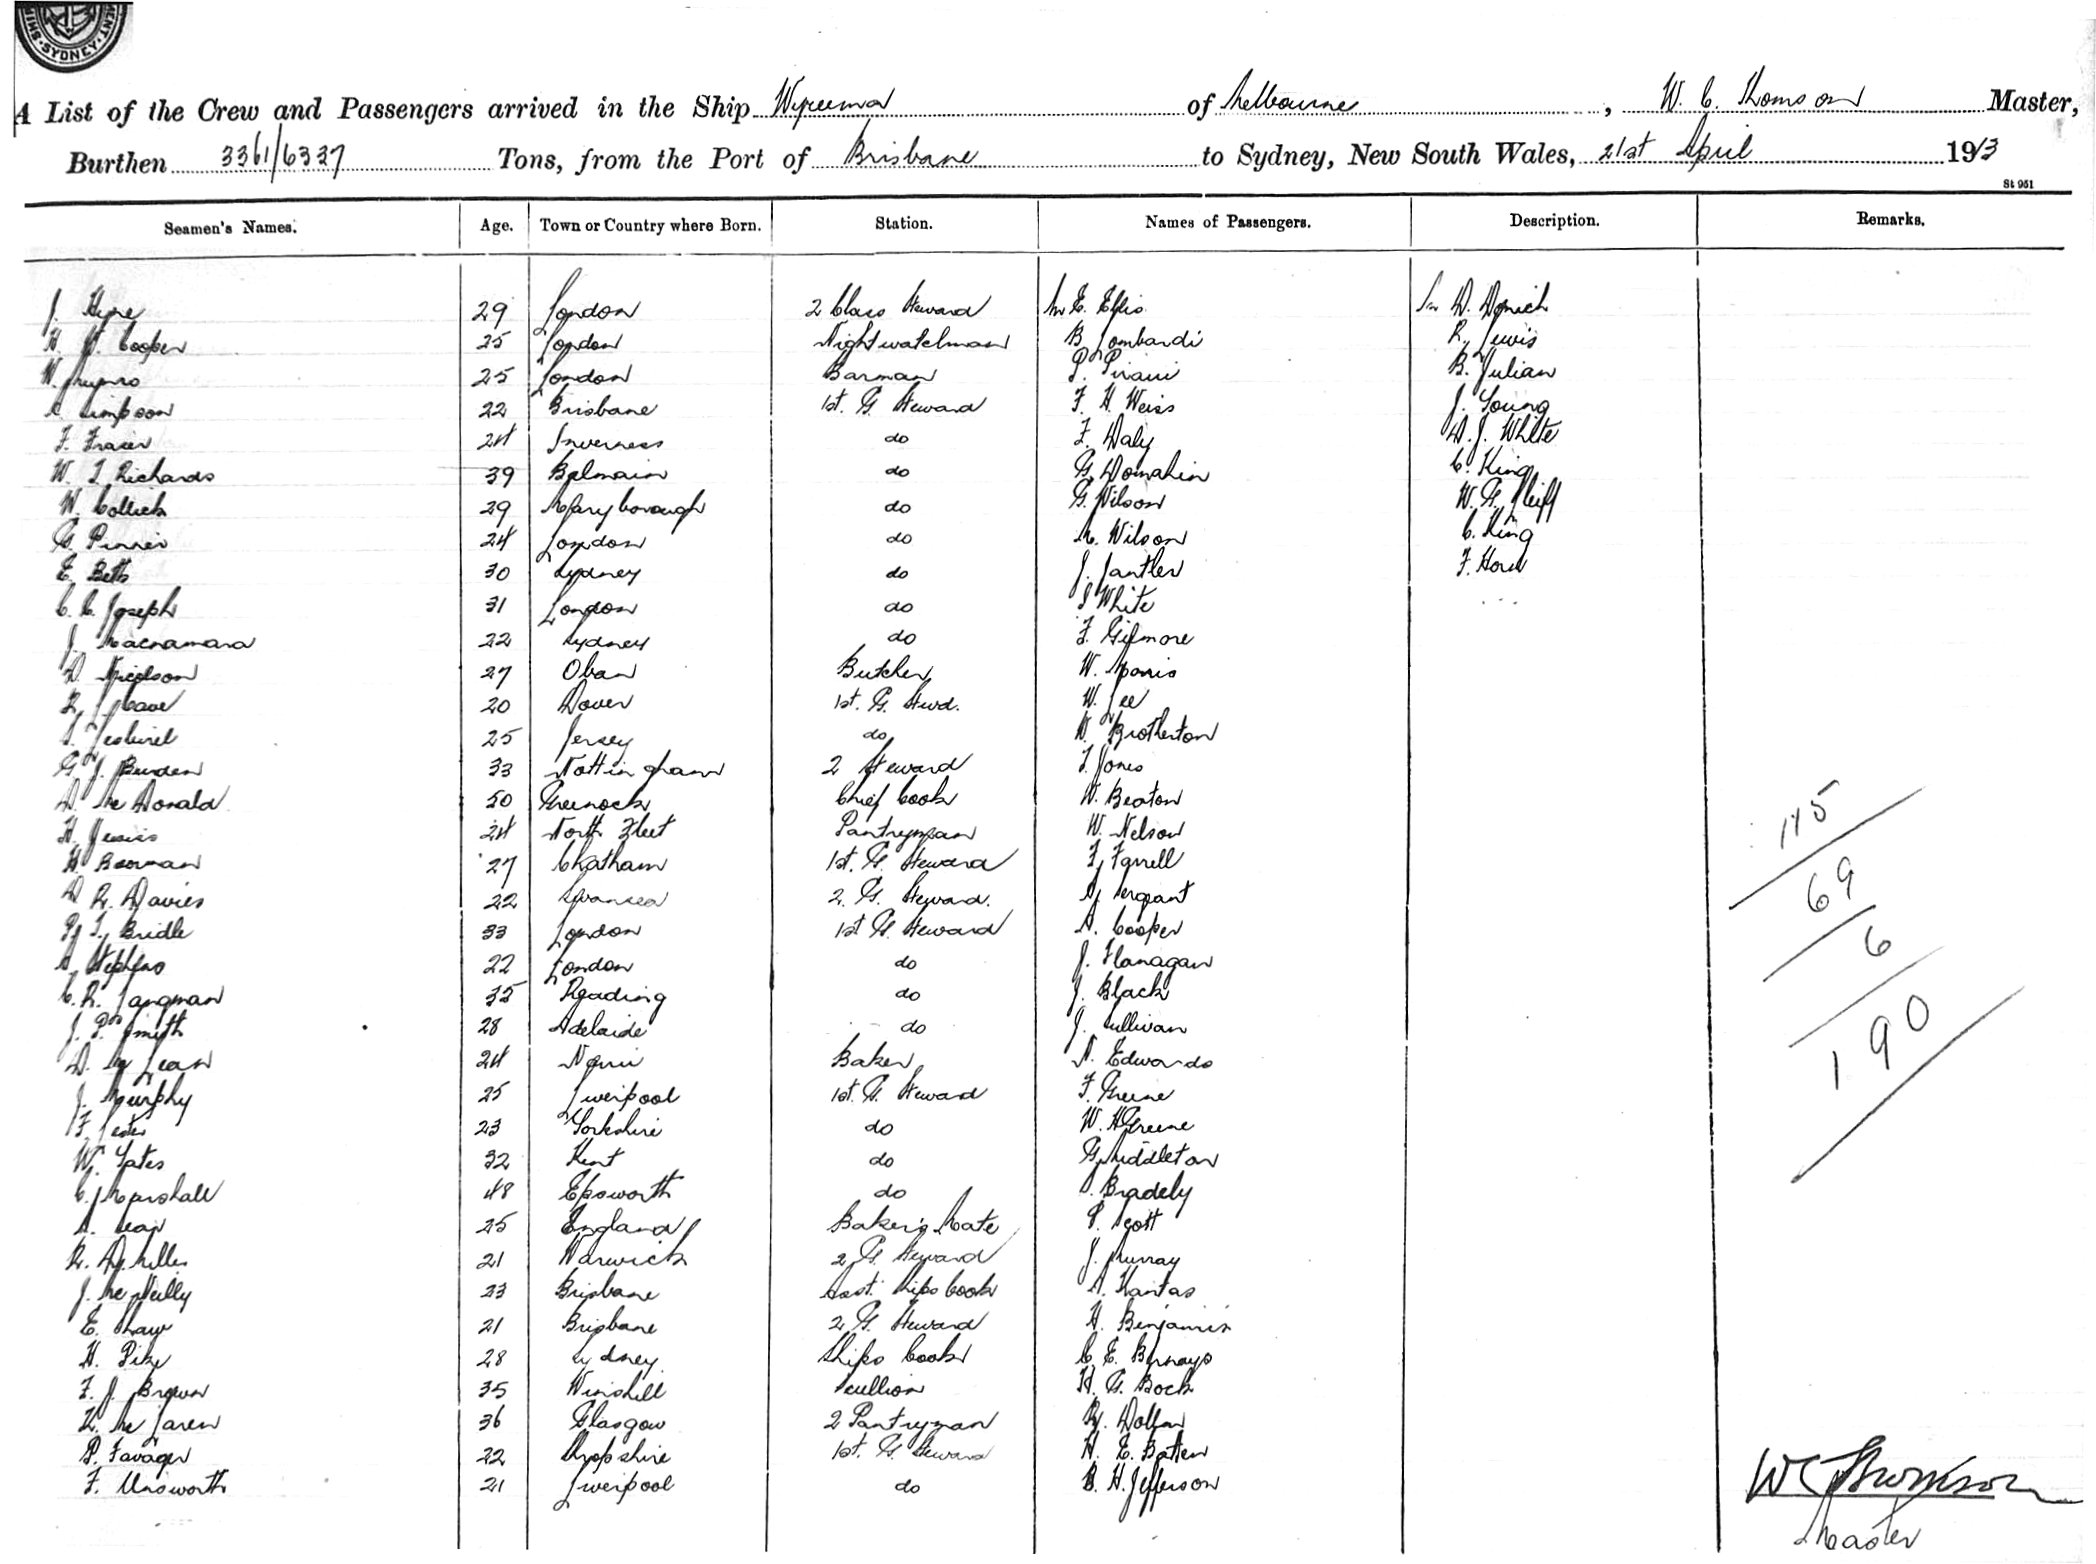 SYDNEY
A List of the Crew and Passengers arrived in the Ship Wyreema of Melbourne, W. C. Thomson Master,
Burthen 3361/6337 Tons, from the Port of Brisbane to Sydney, New South Wales, 21st April 1913
St 951
Seamen's Names. Age. Town or Country where Born. Station. Names of Passengers. Description. Remarks.
J. 29 London 2 Class Steward Mr E. Ellis Mr D.
H. W. Cooper 25 London Nightwatchman B Lombardi R. Lewis
W. Munro 25 London Barman P. B. Julian
Simpson 22 Brisbane 1st. G. Steward F. H. Weiss J. Young
F. Fraser 24 Inverness do F. Daly D. J. White
W. T. Richards 39 Balmain do G. C. King
W. Collick 29 Maryborough do G. Wilson W. G.
G. 24 London do M. Wilson C. King
E. Betts 30 Sydney do J. F.
C. C. Joseph 31 London do S White
J. Macnamara 22 Sydney do F. Gilmore
D. 27 Oban Butcher W. Morris
20 Dover 1st. G. Stwd. W. Lee
25 Jersey do W. Brotherton
G. J. Burden 33 Nottingham 2 Steward T. Jones
D. McDonald 50 Greenock Chief Cook W. Beaton
H. 24 North Fleet Pantryman W. Nelson
H. Boorman 27 Chatham 1st. G. Steward F. Farrell
D R. Davies 22 Swansea 2. G. Steward. A.
P. T. Bridle 33 London 1st G. Steward A. Cooper
A Stephens 22 London do J. Flanagan
C. R. Langman 35 Reading do J. Black
J. P. Smith 28 Adelaide do J. Sullivan
D. McLean 24 Baker A. Edwards
J. Murphy 25 Liverpool 1st. G. Steward F. Greene
F. 23 Yorkshire do W. H Greene
W. Yates 32 Kent do G. Middleton
C. Marshall 48 Epsworth do Bradely
A. 25 England Baker's Mate P. Scott
R. 21 Warwick 2 G. Steward J. Murray
J. McNeilly 23 Brisbane Asst. Ships Cook A. Kantas
E. Shaw 21 Brisbane 2 G. Steward H. Benjamin
H. Pike 28 Sydney Ships Cook C. E. Bernays
F. J. Brown 35 Winshill Scullion H. G. Bock
McLaren 36 Glasgow 2 Pantryman R.
P. Favager 22 Shropshire 1st. G. Steward H. E. Batten
F. Unsworth 21 Liverpool do B. H. Jefferson
115
69
6
190
W C Thomson
Master